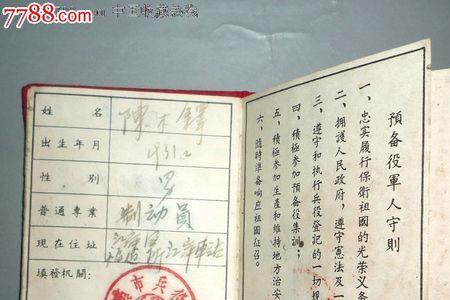 7788.com 中国收藏热线
姓名 陳木鐸
出生年月 1931.2
性別 男
普通專業 制动員
現在住址 江岸車站
填發機關:
預备役軍人守則
一、忠实履行保衛祖國的光荣义务
二、拥護人民政府，遵守憲法及一
三、遵守和执行兵役登記的一切規
四、積極参加預备役集訓;
五、積極参加生產和維持地方治安
六、随時準备响应祖國征召。
兵市